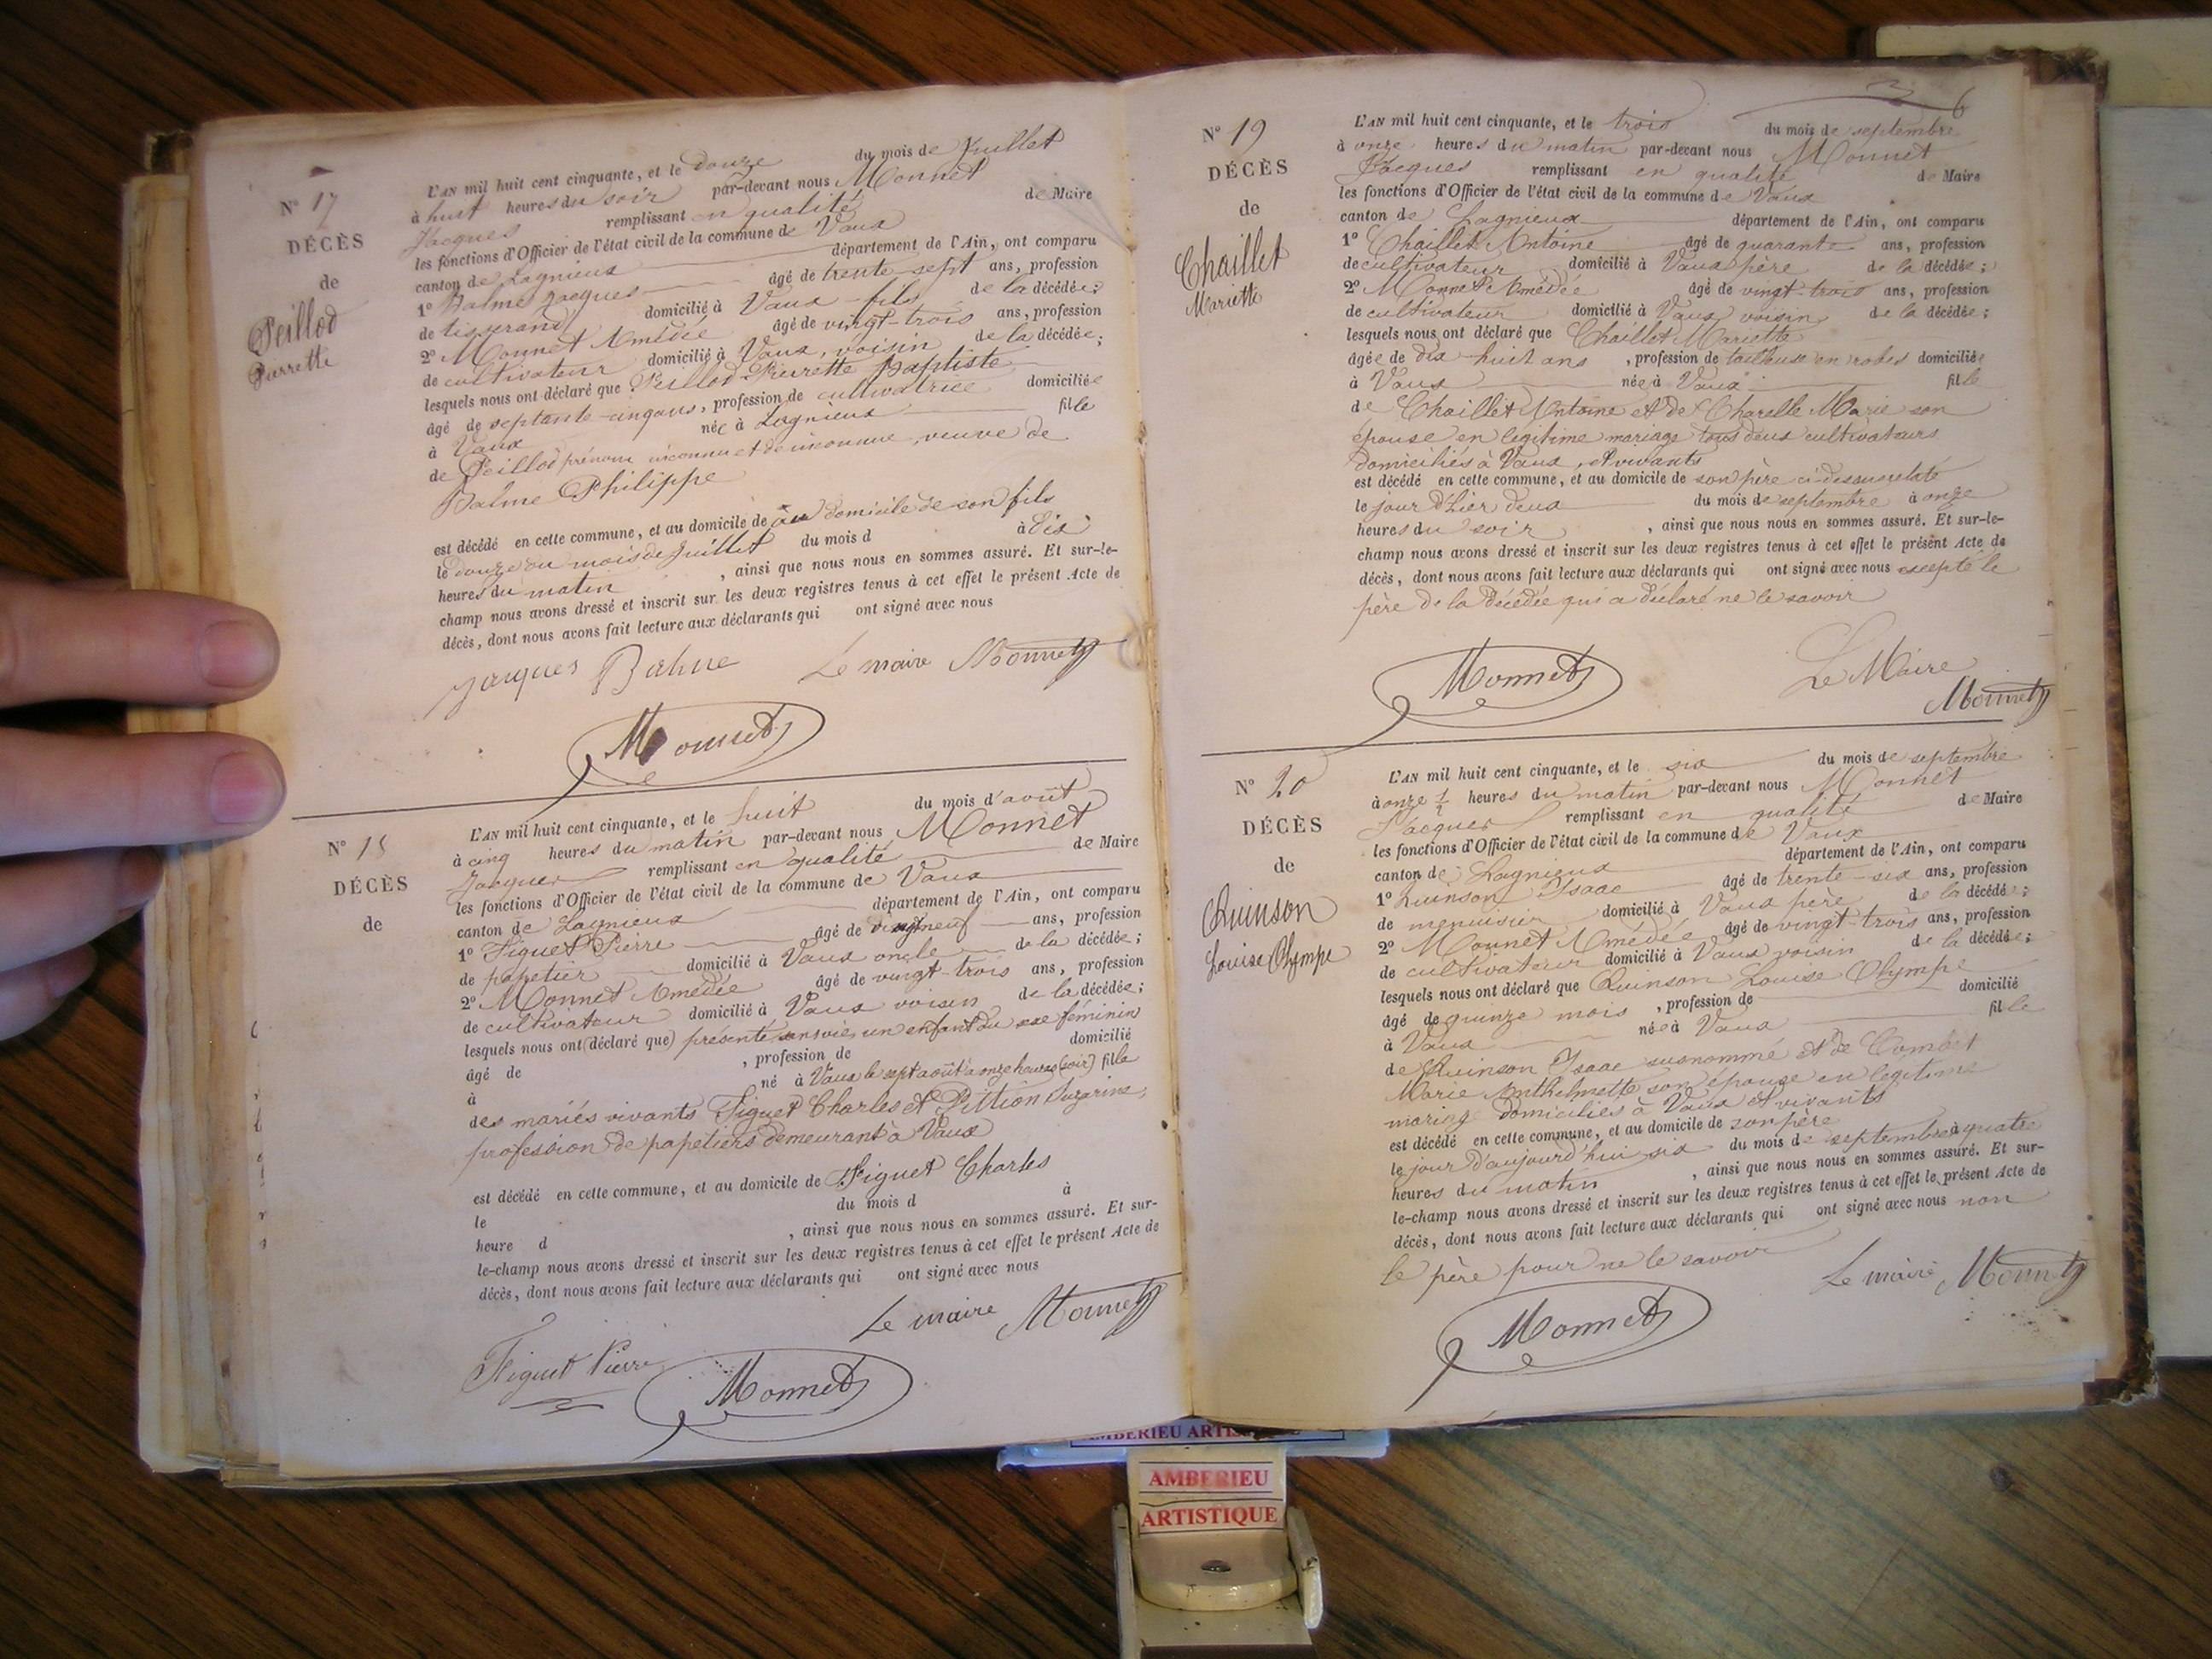 N° 17
DÉCÈS
de
Peillod
Pierrette
L'AN mil huit cent cinquante, et le douze du mois de Juillet
à huit heures du soir par-devant nous Monnet
Jacques remplissant en qualité de Maire
les fonctions d'Officier de l'état civil de la commune de Vaux
canton de Lagnieux département de l'Ain, ont comparu
1° Balme Jacques âgé de trente-sept ans, profession
de tisserand domicilié à Vaux fils de la décédée;
2° Monnet Amédée âgé de vingt-trois ans, profession
de cultivateur domicilié à Vaux, voisin de la décédée;
lesquels nous ont déclaré que Peillod Pierrette Baptiste
âgé de septante-cinq ans, profession de cultivatrice domiciliée
à Vaux née à Lagnieux fille
de Peillod prénom inconnu et de inconnue, veuve de
Balme Philippe
est décédé en cette commune, et au domicile de au domicile de son fils
le douze du mois de Juillet du mois d à dix
heures du matin , ainsi que nous nous en sommes assuré. Et sur-le-
champ nous avons dressé et inscrit sur les deux registres tenus à cet effet le présent Acte de
décès, dont nous avons fait lecture aux déclarants qui ont signé avec nous
Jacques Balme Le maire Monnet
Monnet
N° 18
DÉCÈS
de
L'AN mil huit cent cinquante, et le huit du mois d'août
à cinq heures du matin par-devant nous Monnet
Jacques remplissant en qualité de Maire
les fonctions d'Officier de l'état civil de la commune de Vaux
canton de Lagnieux département de l'Ain, ont comparu
1° Figuet Pierre âgé de neuf ans, profession
de papetier domicilié à Vaux oncle de la décédée;
2° Monnet Amédée âgé de vingt-trois ans, profession
de cultivateur domicilié à Vaux voisin de la décédée;
lesquels nous ont (déclaré que) présenté sans vie, un enfant du sexe féminin
âgé de , profession de domicilié
à né à Vaux le sept août à onze heures (soir) fille
des mariés vivants Figuet Charles et Pittion Suzanne,
profession de papetiers demeurant à Vaux
est décédé en cette commune, et au domicile de Figuet Charles
le du mois d à
heure d , ainsi que nous nous en sommes assuré. Et sur-
le-champ nous avons dressé et inscrit sur les deux registres tenus à cet effet le présent Acte de
décès, dont nous avons fait lecture aux déclarants qui ont signé avec nous
Le maire Monnet
Figuet Pierre
Monnet
6
N° 19
DÉCÈS
de
Chaillet
Mariette
L'AN mil huit cent cinquante, et le trois du mois de septembre
à onze heures du matin par-devant nous Monnet
Jacques remplissant en qualité de Maire
les fonctions d'Officier de l'état civil de la commune de Vaux
canton de Lagnieux département de l'Ain, ont comparu
1° Chaillet Antoine âgé de quarante ans, profession
de cultivateur domicilié à Vaux père de la décédée;
2° Monnet Amédée âgé de vingt-trois ans, profession
de cultivateur domicilié à Vaux voisin de la décédée;
lesquels nous ont déclaré que Chaillet Mariette
âgée de dix-huit ans , profession de tailleuse en robes domiciliée
à Vaux née à Vaux fille
de Chaillet Antoine et de Charelle Marie son
épouse en légitime mariage tous deux cultivateurs
domiciliés à Vaux, et vivants
est décédé en cette commune, et au domicile de son père ci-dessus relaté
le jour d'hier deux du mois de septembre à onze
heures du soir , ainsi que nous nous en sommes assuré. Et sur-le-
champ nous avons dressé et inscrit sur les deux registres tenus à cet effet le présent Acte de
décès, dont nous avons fait lecture aux déclarants qui ont signé avec nous excepté le
père de la décédée qui a déclaré ne le savoir
Monnet Le Maire
Monnet
N° 20
DÉCÈS
de
Quinson
Louise Olympe
L'AN mil huit cent cinquante, et le six du mois de septembre
à onze ½ heures du matin par-devant nous Monnet
Jacques remplissant en qualité de Maire
les fonctions d'Officier de l'état civil de la commune de Vaux
canton de Lagnieux département de l'Ain, ont comparu
1° Quinson Isaac âgé de trente-six ans, profession
de menuisier domicilié à Vaux père de la décédée;
2° Monnet Amédée âgé de vingt-trois ans, profession
de cultivateur domicilié à Vaux voisin de la décédée;
lesquels nous ont déclaré que Quinson Louise Olympe
âgé de quinze mois , profession de domicilié
à Vaux née à Vaux fille
de Quinson Isaac susnommé et de Combet
Marie Anthelmette son épouse en légitime
mariage domiciliés à Vaux et vivants
est décédé en cette commune, et au domicile de son père
le jour d'aujourd'hui six du mois de septembre à quatre
heures du matin , ainsi que nous nous en sommes assuré. Et sur-
le-champ nous avons dressé et inscrit sur les deux registres tenus à cet effet le présent Acte de
décès, dont nous avons fait lecture aux déclarants qui ont signé avec nous non
le père pour ne le savoir
Le maire Monnet
Monnet
AMBERIEU
ARTISTIQUE